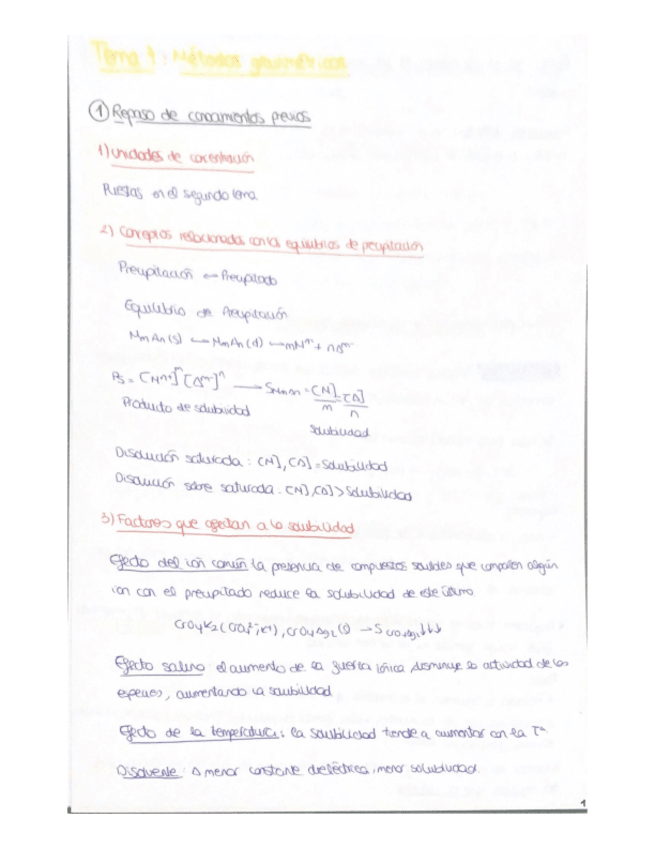 Tema 1: Métodos gravimétricos
① Repaso de conocimientos previos
1) Unidades de concentración
Puestas en el segundo tema.
2) Conceptos relacionados con los equilibrios de precipitación
Precipitación Precipitado
Equilibrio de Precipitación
Producto de solubilidad
Solubilidad
Disolución saturada: [M], [A] = Solubilidad
Disolución sobre saturada: [M], [A] > Solubilidad
3) Factores que afectan a la solubilidad
Efecto del ión común: la presencia de compuestos solubles que comparten algún
ion con el precipitado reduce la solubilidad de este último
Efecto salino: el aumento de la fuerza iónica disminuye la actividad de las
especies, aumentando la solubilidad
Efecto de la temperatura: la solubilidad tiende a aumentar con la Tª.
Disolvente: A menor constante dieléctrica, menor solubilidad.
1